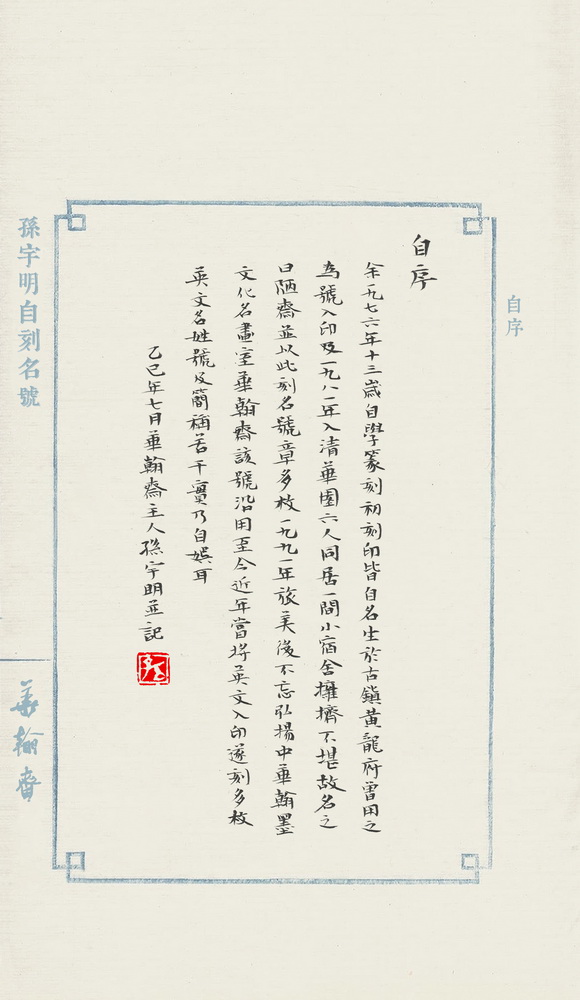 自序
自序
余一九七六年十三歲自學篆刻初刻印皆自名生於古鎮黃龍府曾用之
為號入印及一九八一年入清華園六人同居一間小宿舍擁擠不堪故名之
曰陋齋並以此刻名號章多枚一九九一年旅美後不忘弘揚中華翰墨
文化名畫室華翰齋該號沿用至今近年當將英文入印遂刻多枚
英文名姓號及簡稱若干實乃自娛耳
乙巳年七月華翰齋主人孫宇明並記
孫宇明自刻名號
華翰齋